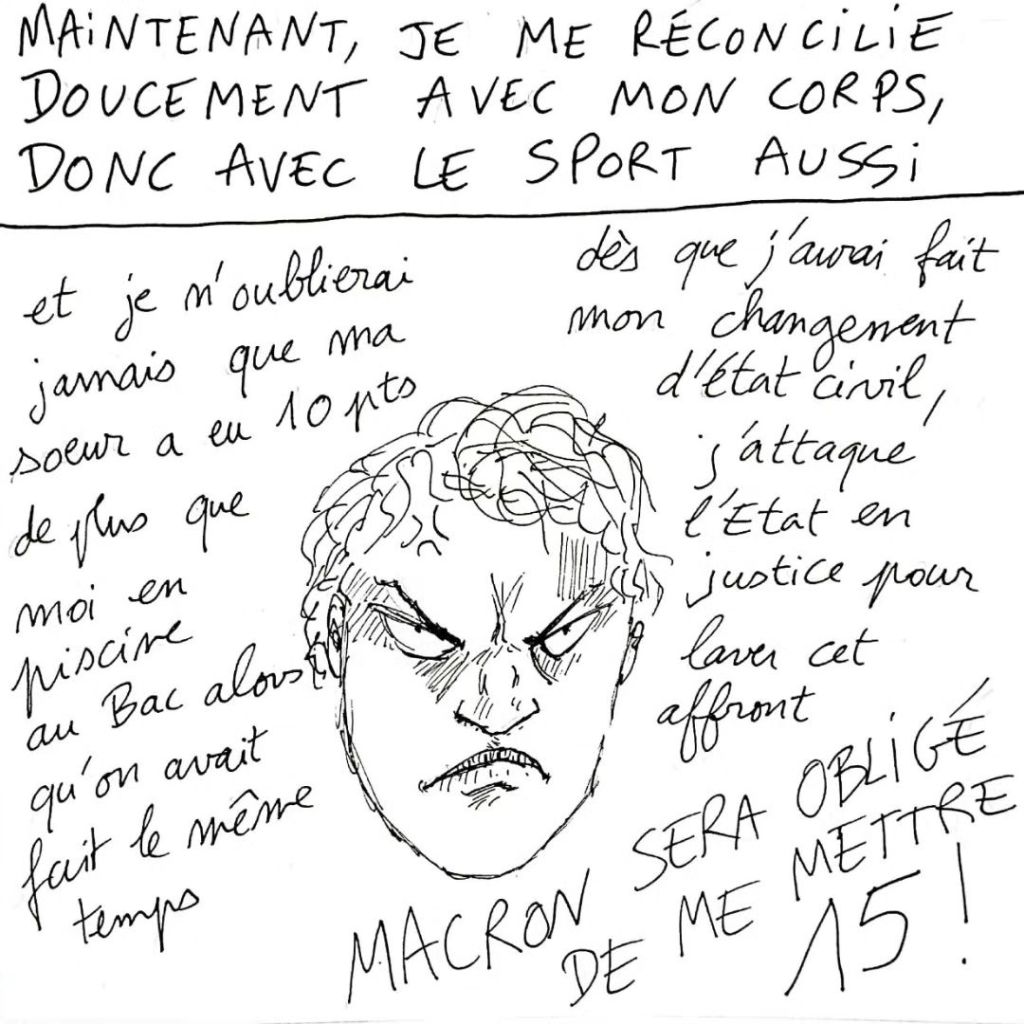 MAINTENANT, JE ME RÉCONCILIE
DOUCEMENT AVEC MON CORPS,
DONC AVEC LE SPORT AUSSI
et je n'oublierai
jamais que ma
soeur a eu 10 pts
de plus que
moi en
piscine
au Bac alors
qu'on avait
fait le même
temps
dès que j'aurai fait
mon changement
d'état civil,
j'attaque
l'Etat en
justice pour
laver cet
affront
MACRON SERA OBLIGÉ
DE ME METTRE
15 !